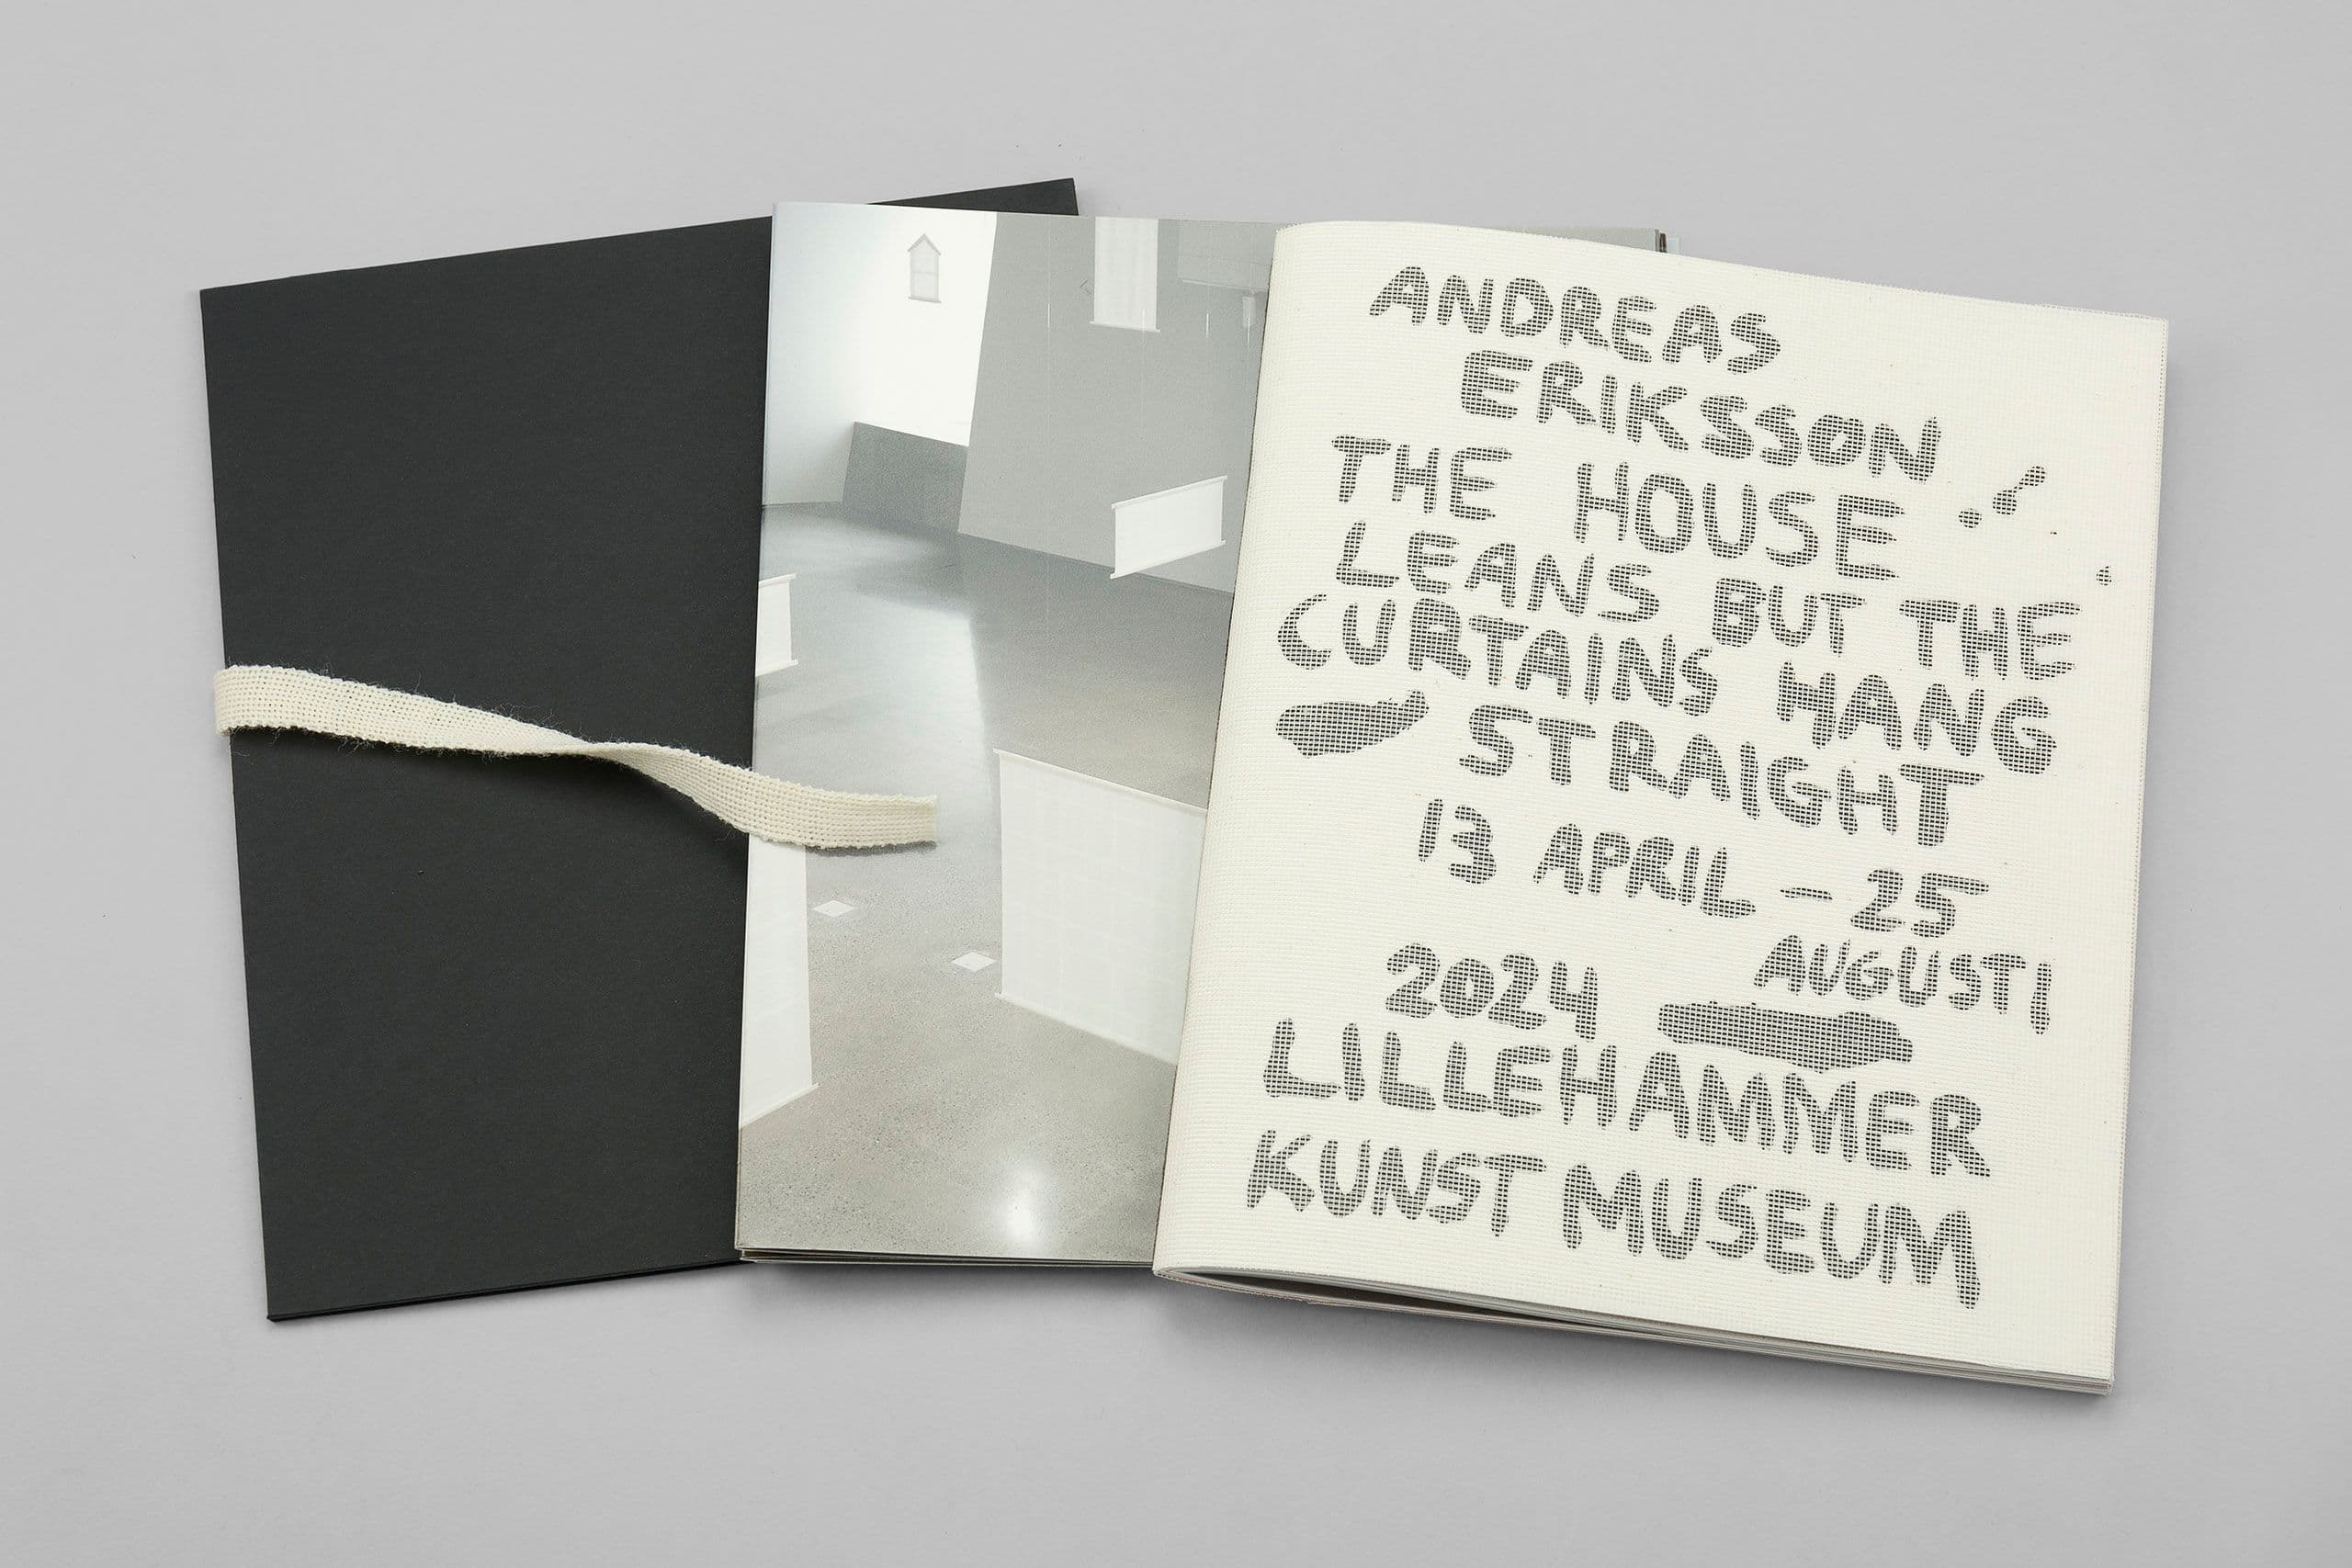 ANDREAS
ERIKSSON
THE HOUSE
LEANS BUT THE
CURTAINS HANG
STRAIGHT
13 APRIL – 25
AUGUSTI
2024
LILLEHAMMER
KUNSTMUSEUM